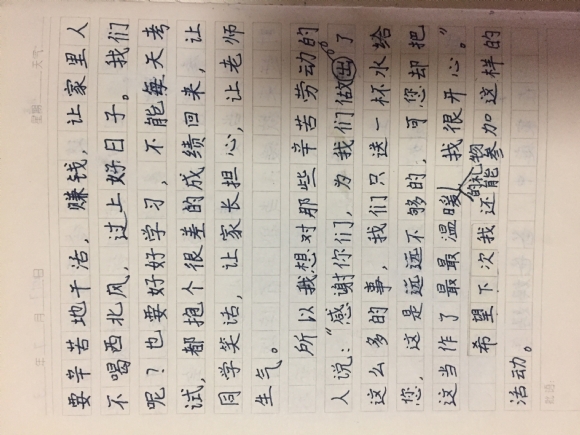 要辛苦地干活，赚钱，让家里人
不喝西北风，过上好日子。我们
呢？也要好好学习，不能每天考
试，都抱个很差的成绩回来，让
同学笑话，让家长担心，让老师
生气。
所以我想对那些辛苦劳动的
人说：“感谢你们，为我们做出了
这么多的事，我们只送一杯水给
您，这是远远不够的，可您却把
这当作了最最温暖的礼物，我很开心。”
希望下次我还能参加这样的
活动。